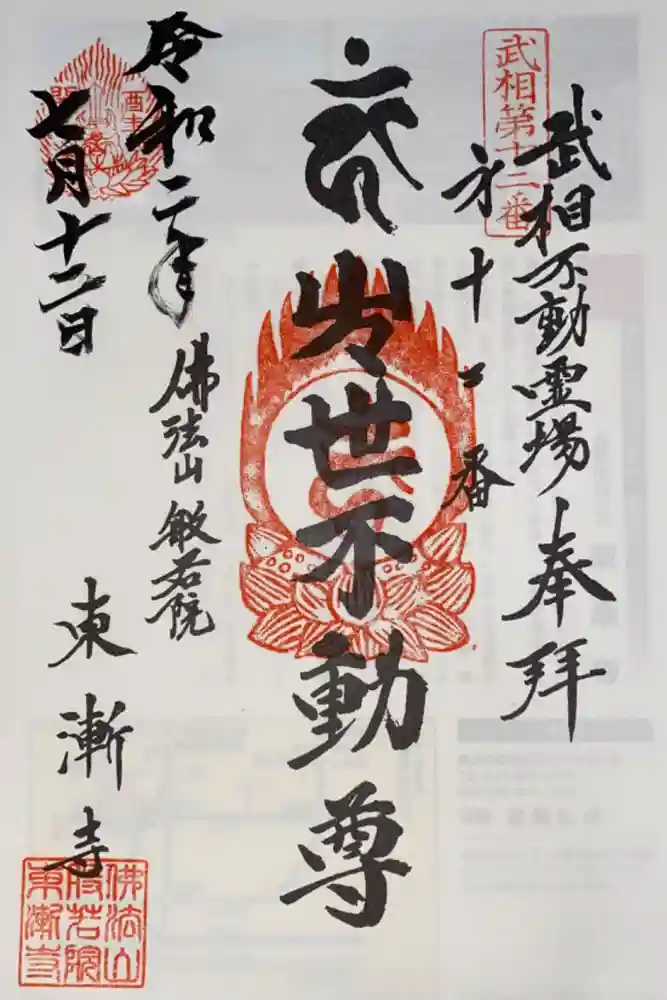 武相不動霊場 奉拝
武相第十二番
㐧十二番
出世不動尊
佛法山 般若院
東漸寺
令和二年
七月十二日
佛法山
般若院
東漸寺